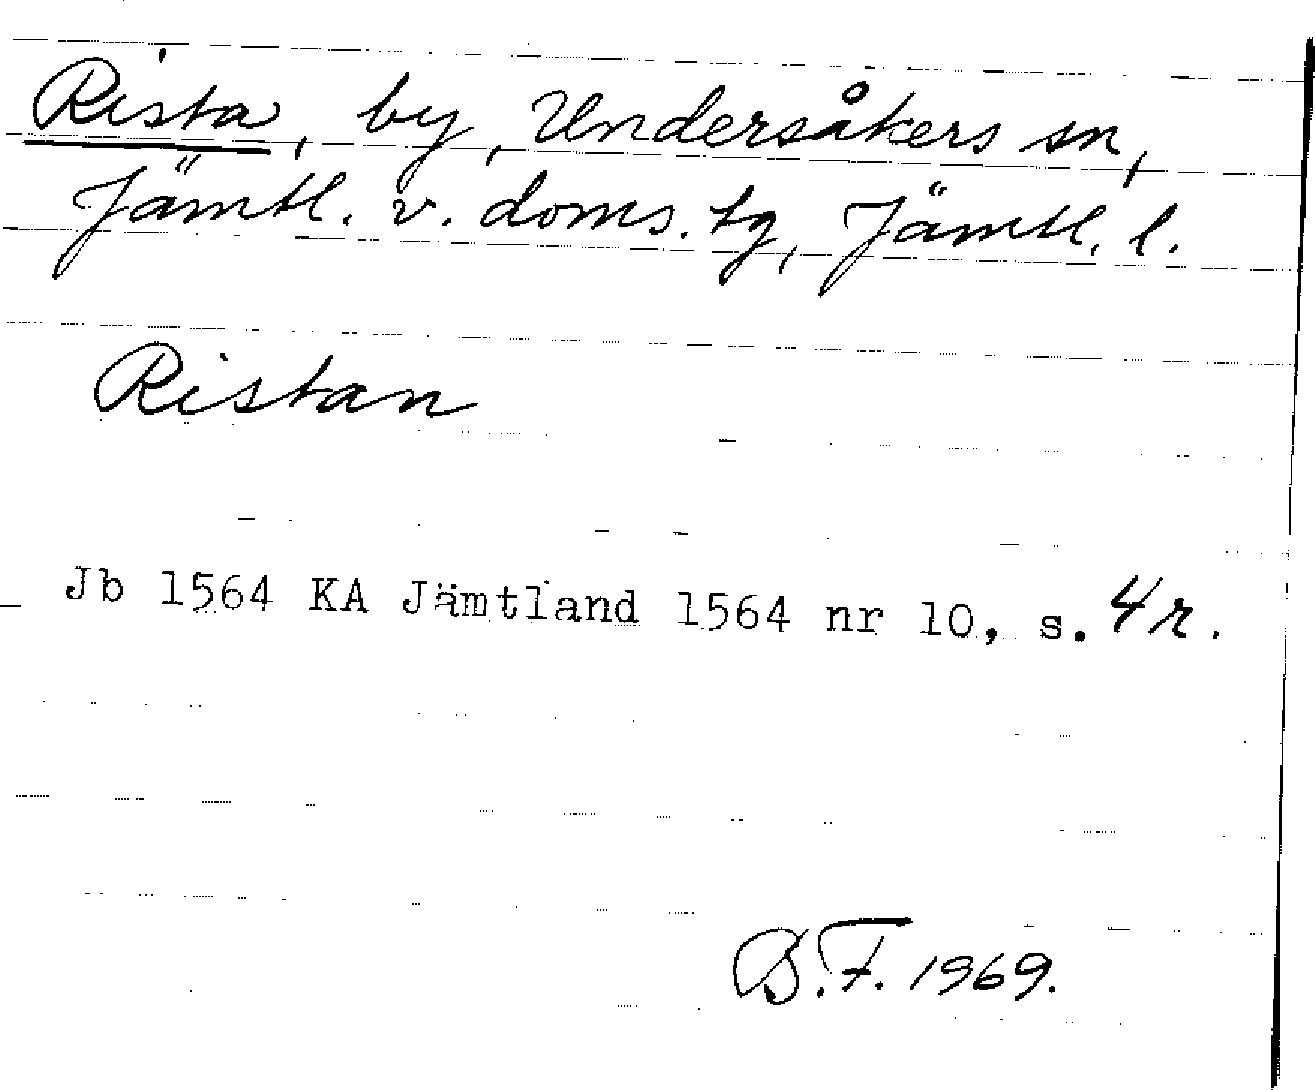 Rista, by, Undersåkers sn,
Jämtl. v. doms. tg, Jämtl. l.
Ristan
Jb 1564 KA Jämtland 1564 nr 10, s. 4 r.
B.F. 1969.